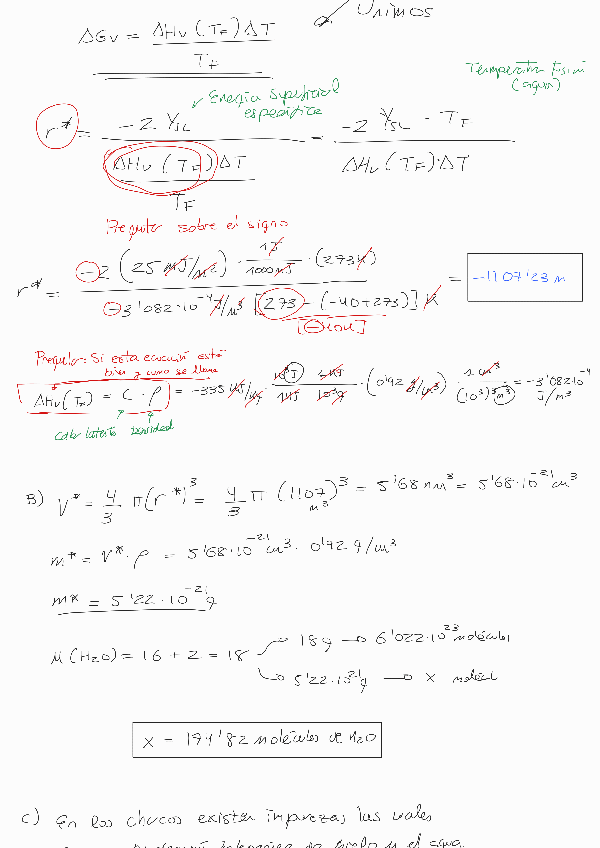 Unimos
ΔGv = ΔHv (TF) ΔT / TF
Energía superficial
específica
Temperatura fusión
(agua)
r* = -2 γSL / (ΔHv (TF) ΔT / TF) = -2 γSL · TF / ΔHv (TF) · ΔT
Pregunta sobre el signo
r* = -2 (25 mJ/m²) · 1J/1000mJ · (273K) / -3'082·10⁻⁴ J/m³ [273 - (-40+273)] K = -1107'23 m
Pregunta: Si esta ecuación está
bien y como se llama
ΔHv (TF) = C · ρ = -335 · (0'92 g/cm³) · 1 cm³ / (10⁻²)³ m³ = -3'082·10⁻⁴
J/m³
Calor latente densidad
B) V* = 4/3 π (r*)³ = 4/3 π (1'107)³ = 5'68 nm³ = 5'68·10⁻²¹ cm³
m* = V* · ρ = 5'68·10⁻²¹ cm³ · 0'92 g/cm³
m* = 5'22·10⁻²¹ g
M (H2O) = 16 + 2 = 18
18g → 6'022·10²³ moléculas
5'22·10⁻²¹ g → x moléc
x = 174'82 moléculas de H2O
C) En los charcos existen impurezas, las cuales
el agua